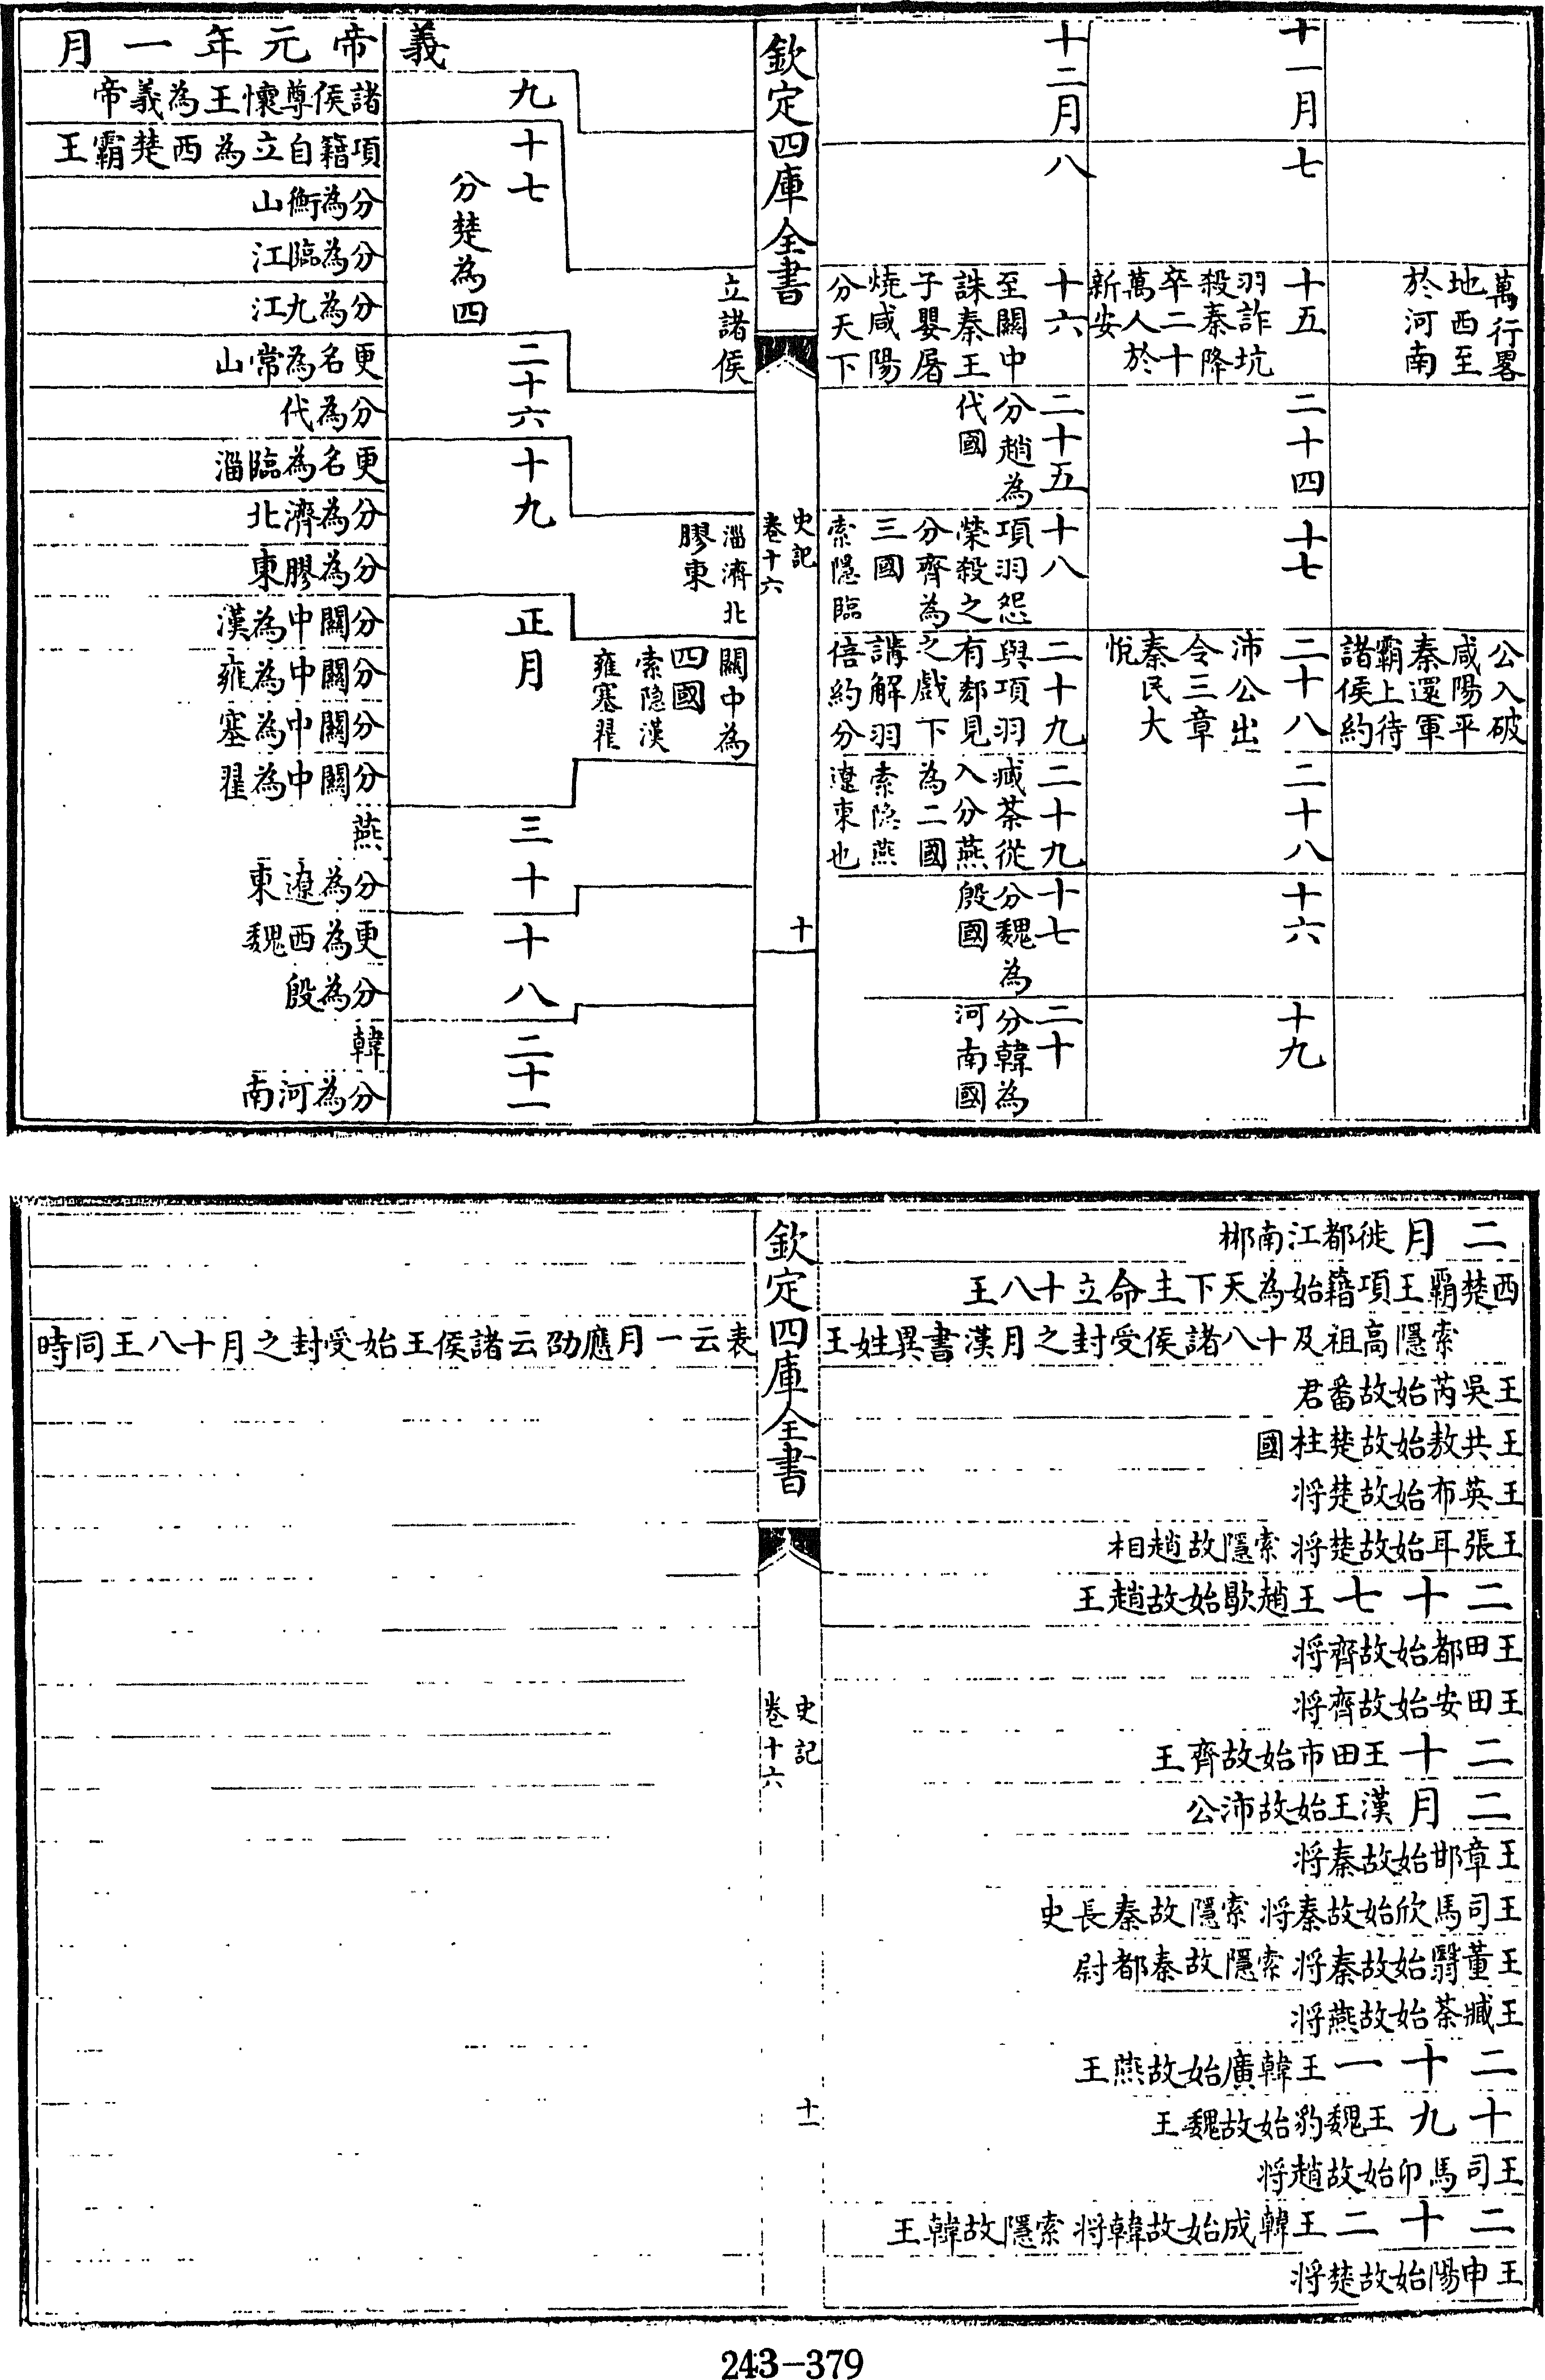 萬行畧
地西至
於河南
公入破
咸陽平
秦還軍
霸上待
諸侯約
十一月
七
十五
羽詐坑
殺秦降
卒二十
萬人於
新安
二十四
十七
二十八
沛公出
令三章
秦民大
悅
二十八
十六
十九
十二月
八
十六
至關中
誅秦王
子嬰屠
燒咸陽
分天下
二十五
分趙為
代國
十八
項羽怨
榮殺之
分齊為
三國
索隱臨
二十九
與項羽
有郄見
之戲下
講解羽
倍約分
二十九
臧荼從
入分燕
為二國
索隐燕
遼東也
十七
分魏為
殷國
二十
分韓為
河南國
欽定四庫全書
史記
卷十六
十
立諸侯
淄濟北
膠東
關中為
四國
索隐漢
雍塞翟
九
十七
分楚為四
二十六
十九
正月
三十
十八
二十一
義帝元年一月
諸侯尊懷王為義帝
項籍自立為西楚霸王
分為衡山
分為臨江
分為九江
更名為常山
分為代
更名為臨淄
分為濟北
分為膠東
分關中為漢
分關中為雍
分關中為塞
分關中為翟
燕
分為遼東
更為西魏
分為殷
韓
分為河南
二月徙都江南郴
西楚霸王項籍始為天下主命立十八王
索隱高祖及十八諸侯受封之月漢書異姓王
表云一月應劭云諸侯王始受封之月十八王同時
王吳芮始故番君
王共敖始故楚柱國
王英布始故楚将
王張耳始故楚将索隱故趙相
二十七王趙歇始故趙王
王田都始故齊将
王田安始故齊将
二十王田市始故齊王
二月漢王始故沛公
王章邯始故秦将
王司馬欣始故秦将索隱故秦長史
王董翳始故秦将索隱故秦都尉
王臧荼始故燕将
二十一王韓廣始故燕王
十九王魏豹始故魏王
王司馬卬始故趙将
二十二王韓成始故韓将索隱故韓王
王申陽始故楚将
欽定四庫全書
史記
卷十六
十一
243-379